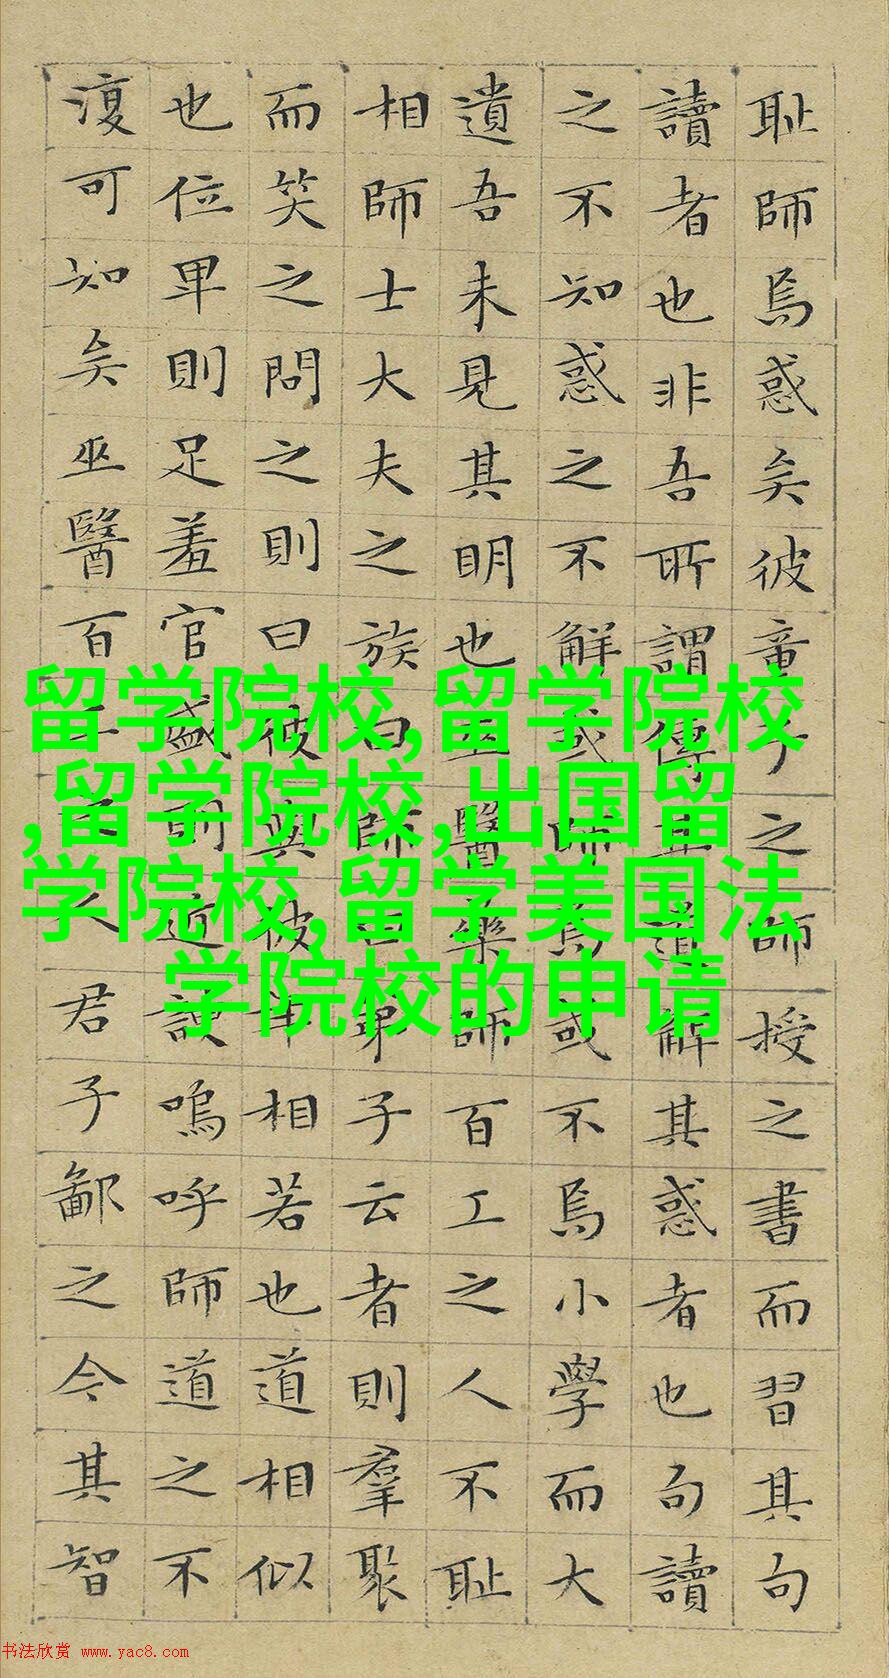 耻師焉惑矣彼童子之師授之書而習其句
讀者也非吾所謂傳其道解其惑者也句讀
之不知惑之不解或師焉或不焉小學而大
遺吾未見其明也巫醫樂師百工之人不耻
相師士大夫之族曰師曰弟子云者則羣聚
而笑之問之則曰彼與彼年相若也道相似
也位卑則足羞官盛則近諛嗚呼師道之不
復可知矣巫醫百工之人君子鄙之今其智
留学院校,留学院校
,留学院校,出国留
学院校,留学美国法
学院校的申请
书法欣赏 www.yac8.com